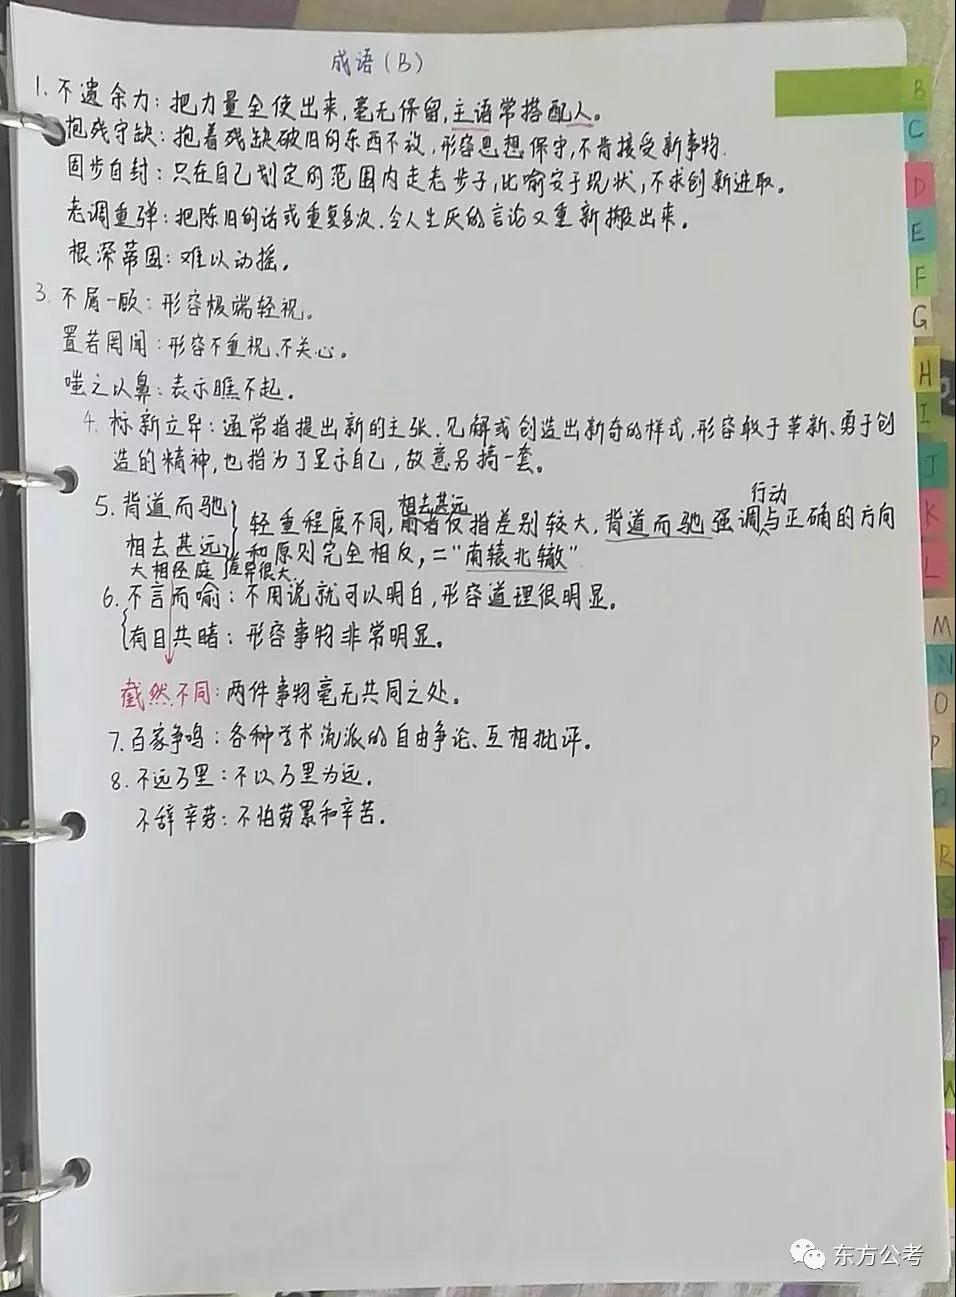 成语(B)
1. 不遗余力：把力量全使出来，毫无保留，主语常搭配人。
抱残守缺：抱着残缺破旧的东西不放，形容思想保守，不肯接受新事物.
固步自封：只在自己划定的范围内走老步子，比喻安于现状，不求创新进取。
老调重弹：把陈旧的话或重复多次、令人生厌的言论又重新搬出来。
根深蒂固：难以动摇。
3. 不屑一顾：形容极端轻视。
置若罔闻：形容不重视、不关心。
嗤之以鼻：表示瞧不起。
4. 标新立异：通常指提出新的主张、见解或创造出新奇的样式，形容敢于革新、勇于创
造的精神，也指为了显示自己，故意另搞一套。
相去甚远 行动
5. 背道而驰 轻重程度不同，前者仅指差别较大，背道而驰强调与正确的方向
相去甚远 和原则完全相反，="南辕北辙"
大相径庭 差异很大
6. 不言而喻：不用说就可以明白，形容道理很明显。
有目共睹：形容事物非常明显。
截然不同：两件事物毫无共同之处。
7. 百家争鸣：各种学术流派的自由争论、互相批评。
8. 不远万里：不以万里为远。
不辞辛劳：不怕劳累和辛苦。
B
C
D
E
F
G
H
I
J
K
L
M
N
O
P
R
S
东方公考